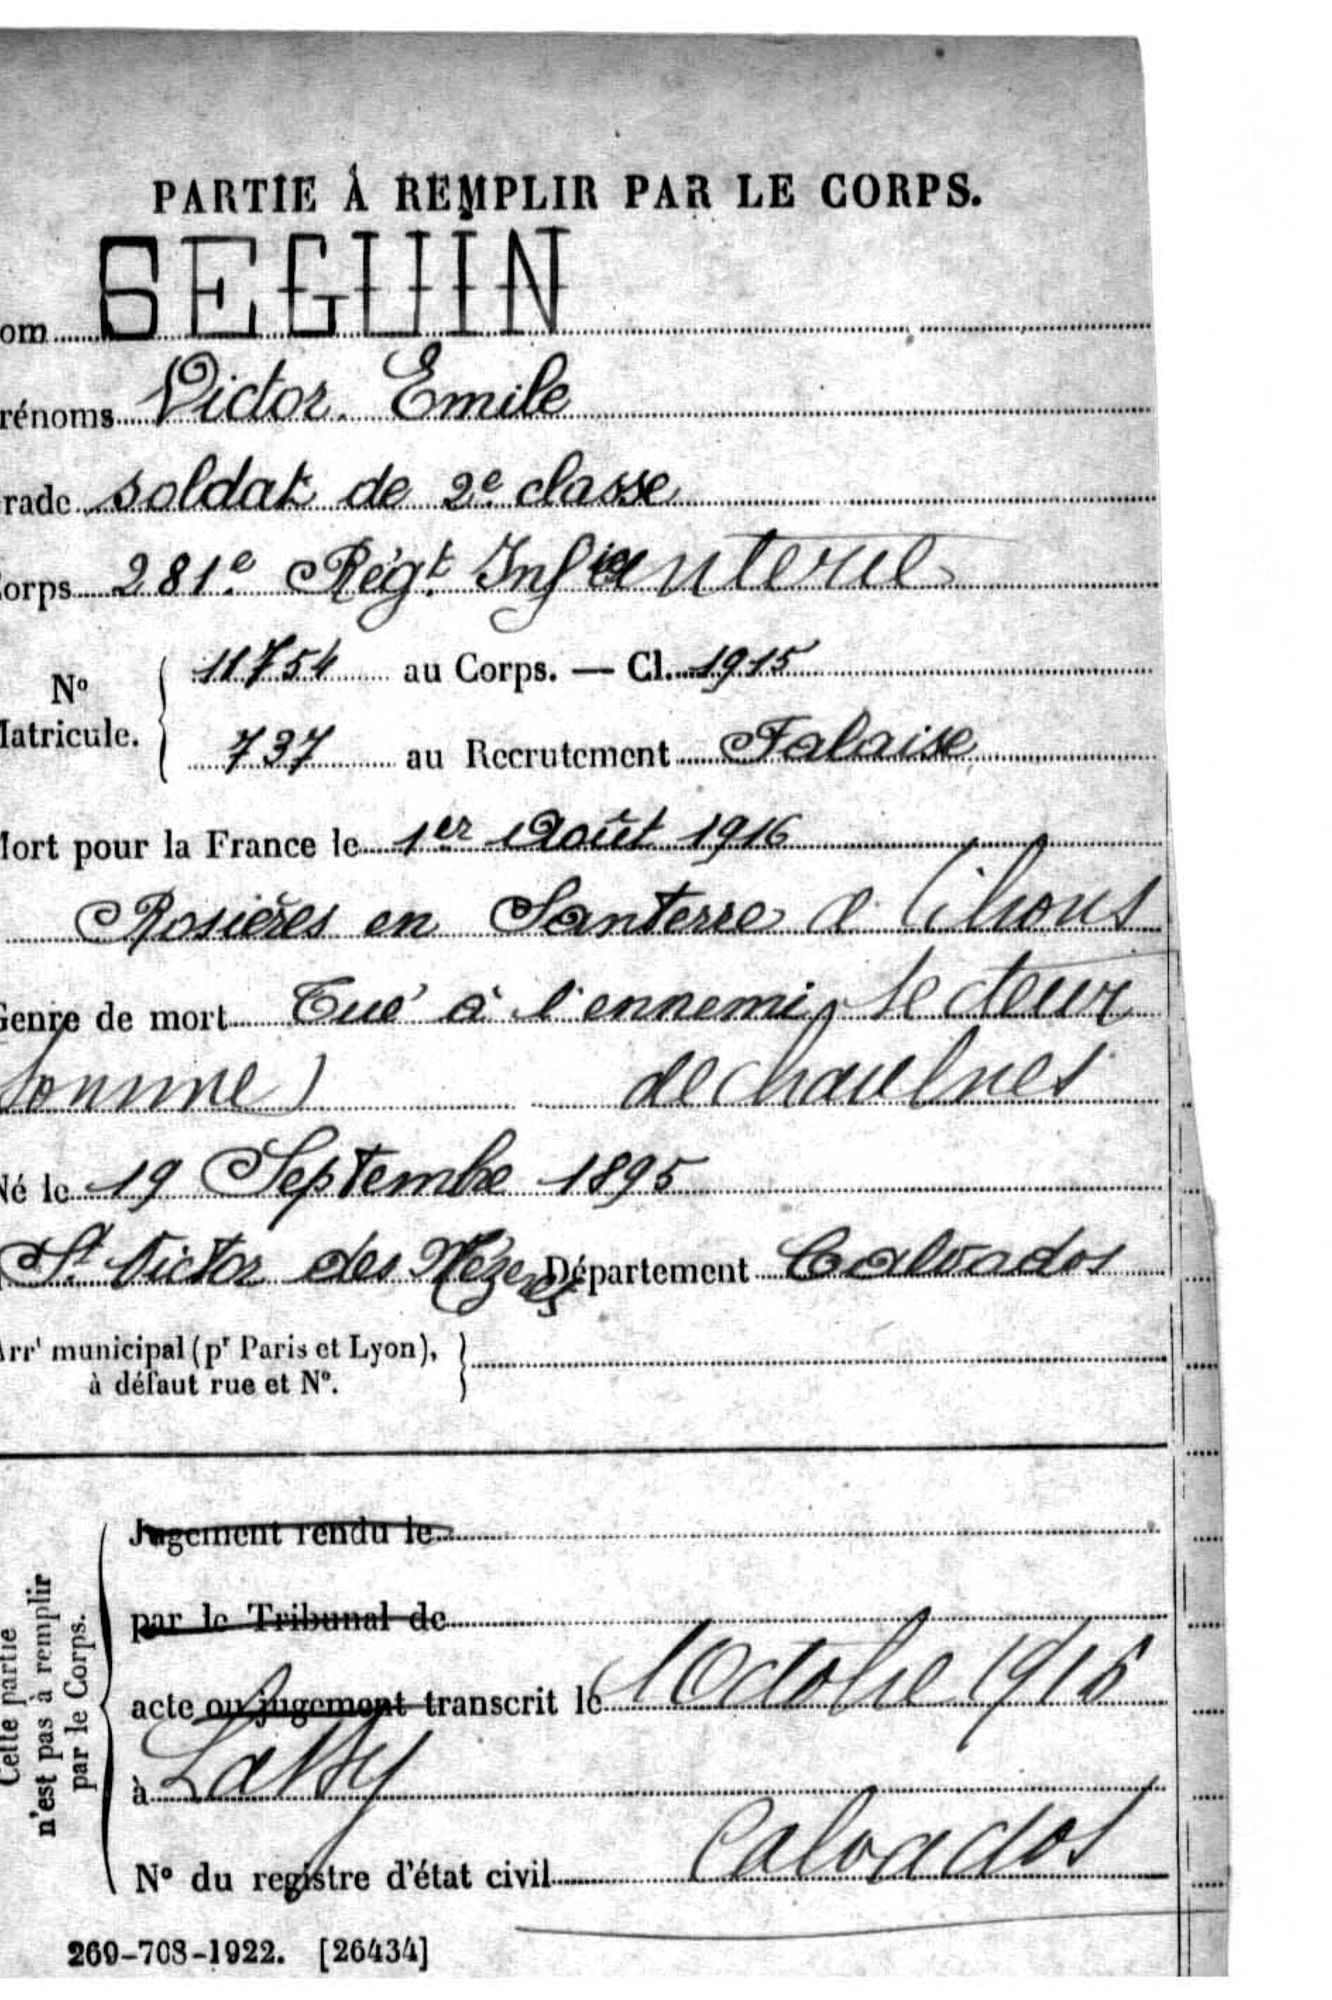 PARTIE À REMPLIR PAR LE CORPS.
om SEGUIN
rénoms Victor Emile
rade soldat de 2e classe
orps 281e Régt Infanterie
N° 11754 au Corps. — Cl. 1915
Matricule. 737 au Recrutement Falaise
Mort pour la France le 1er Août 1916
Rosières en Santerre à Lihons
Genre de mort Tué à l'ennemi secteur
Somme) de Chaulnes
Né le 19 Septembre 1895
St Victor des Département Calvados
Arrt municipal (pr Paris et Lyon),
à défaut rue et N°.
Cette partie
n'est pas à remplir
par le Corps.
Jugement rendu le
par le Tribunal de
acte ou jugement transcrit le Octobre
à Lassy
Calvados
N° du registre d'état civil
269-708-1922. [26434]